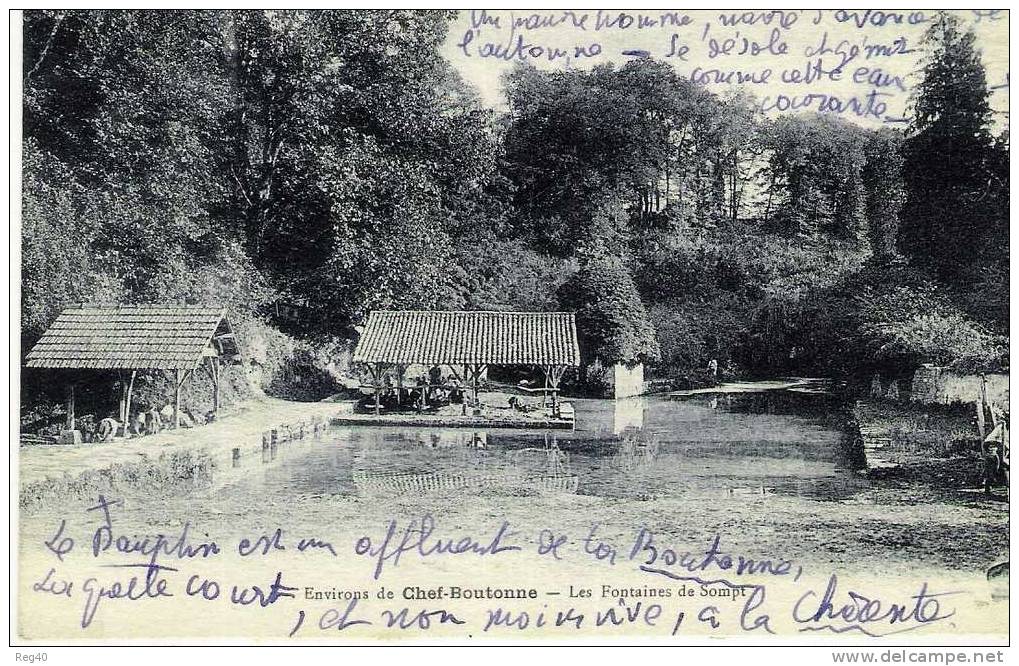 Un pauvre homme, navré d'avance de
l'automne — Se désole et gémit
comme cette eau
courante —
Le Dauphin est un affluent de la Boutonne,
Environs de Chef-Boutonne — Les Fontaines de Sompt
La quelle court
, et non moins vive, à la Chérente
Reg40
http://www.delcampe.net